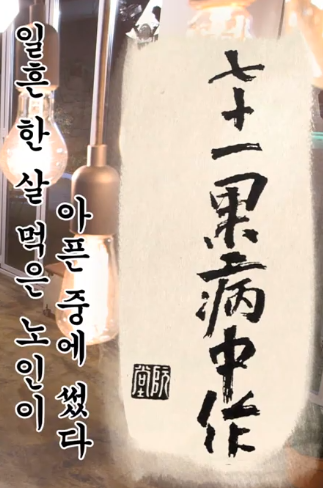 일흔 한 살 먹은 노인이
아픈 중에 썼다
七十一果病中作
阮堂